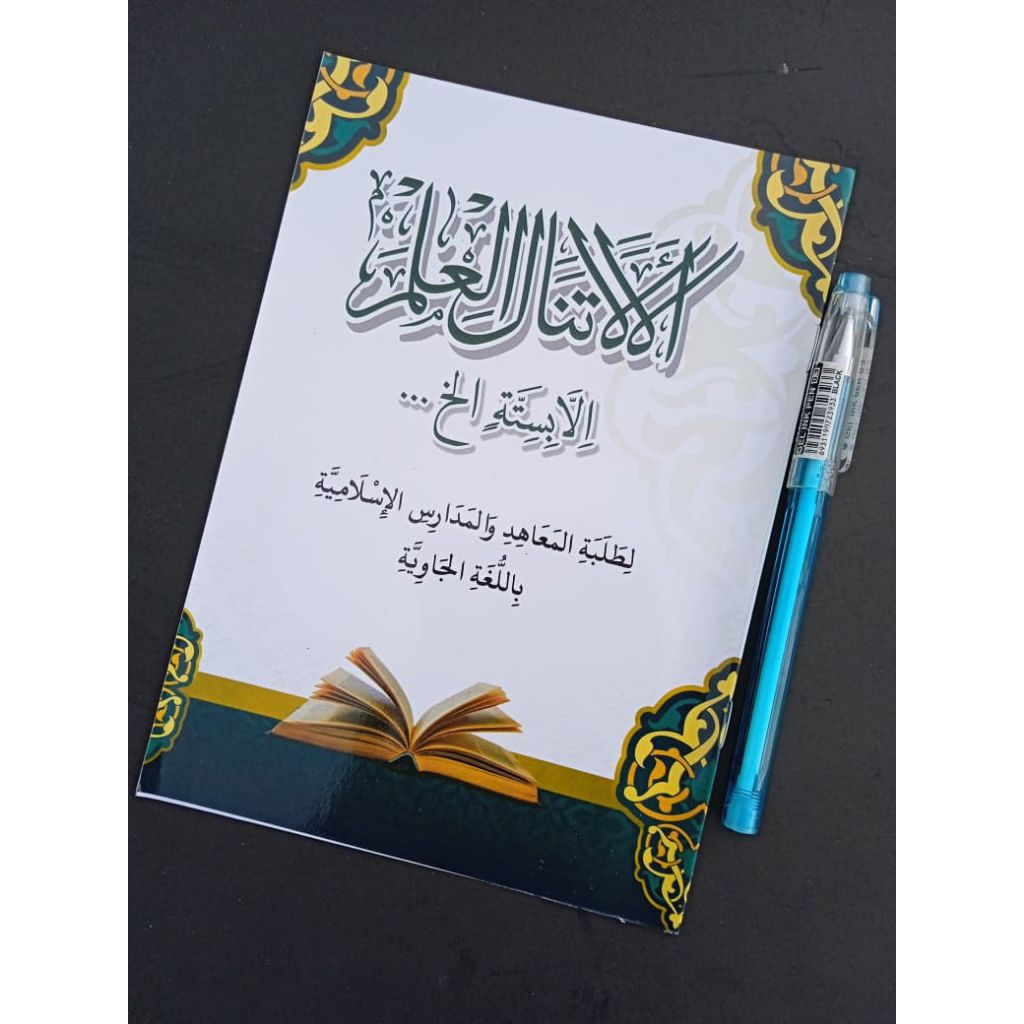 أَلَا لَا تَنَالُ الْعِلْمَ
اِلَّا بِسِتَّةٍ الخ ...
لِطَلَبَةِ المَعَاهِدِ وَالمَدَارِسِ الإِسْلَامِيَّةِ
بِاللُّغَةِ الجَاوِيَّةِ
GEL INK PEN 0.3
6931190723933 BLACK